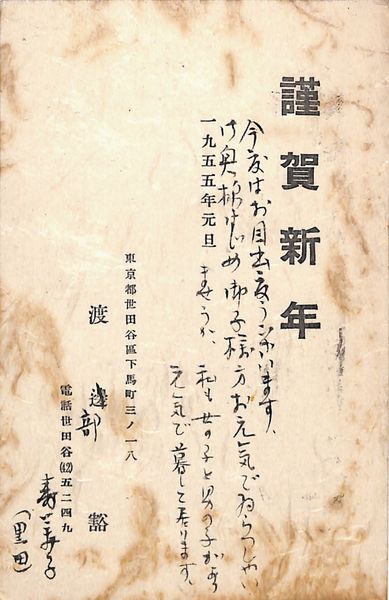 謹賀新年
今度はお目出度うございます、
御奥様はじめ御子様方お元気でゐらっしゃい
一九五五年元旦
ませうか、私も女の子と男の子があり
元気で暮して居ります、
東京都世田谷區下馬町三ノ一八
渡邊部 豁
電話世田谷(42)五二四九
(黒田)